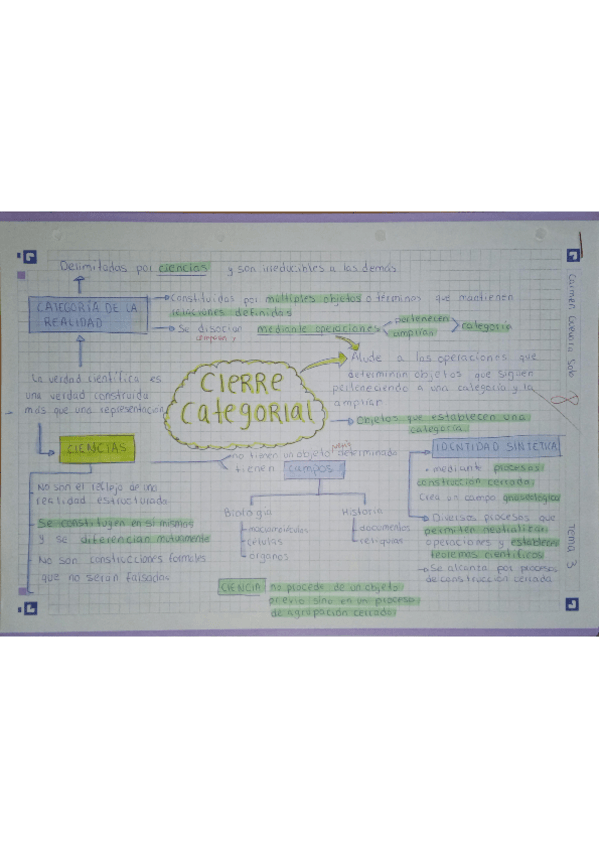 Delimitadas por ciencias y son irreducibles a las demás
CATEGORÍA DE LA
REALIDAD
Constituidas por múltiples objetos o términos que mantienen
relaciones definidas
Se disocian mediante operaciones
pertenecen
amplían
categoría
Alude a las operaciones que
determinan objetos que siguen
perteneciendo a una categoría y la
ampliar
CIERRE
CATEGORIAL
La verdad científica es
una verdad construida
más que una representación
Objetos que establecen una
categoría
CIENCIAS
no tienen un objeto determinado
tienen campos
IDENTIDAD SINTÉTICA
mediante procesos
construcción cerrada
crea un campo gnoseológico
No son el reflejo de una
realidad estructurada
Se constituyen en sí mismas
y se diferencian mutuamente
No son construcciones formales
que no serán falsadas
Biología
macromoléculas
células
órganos
Historia
documentos
reliquias
Diversos procesos que
permiten neutralizar
operaciones y establecer
teoremas científicos
Se alcanza por procesos
de construcción cerrada
CIENCIA no procede de un objeto
previo sino en un proceso
de agrupación cerrado
Tema 3
8
1